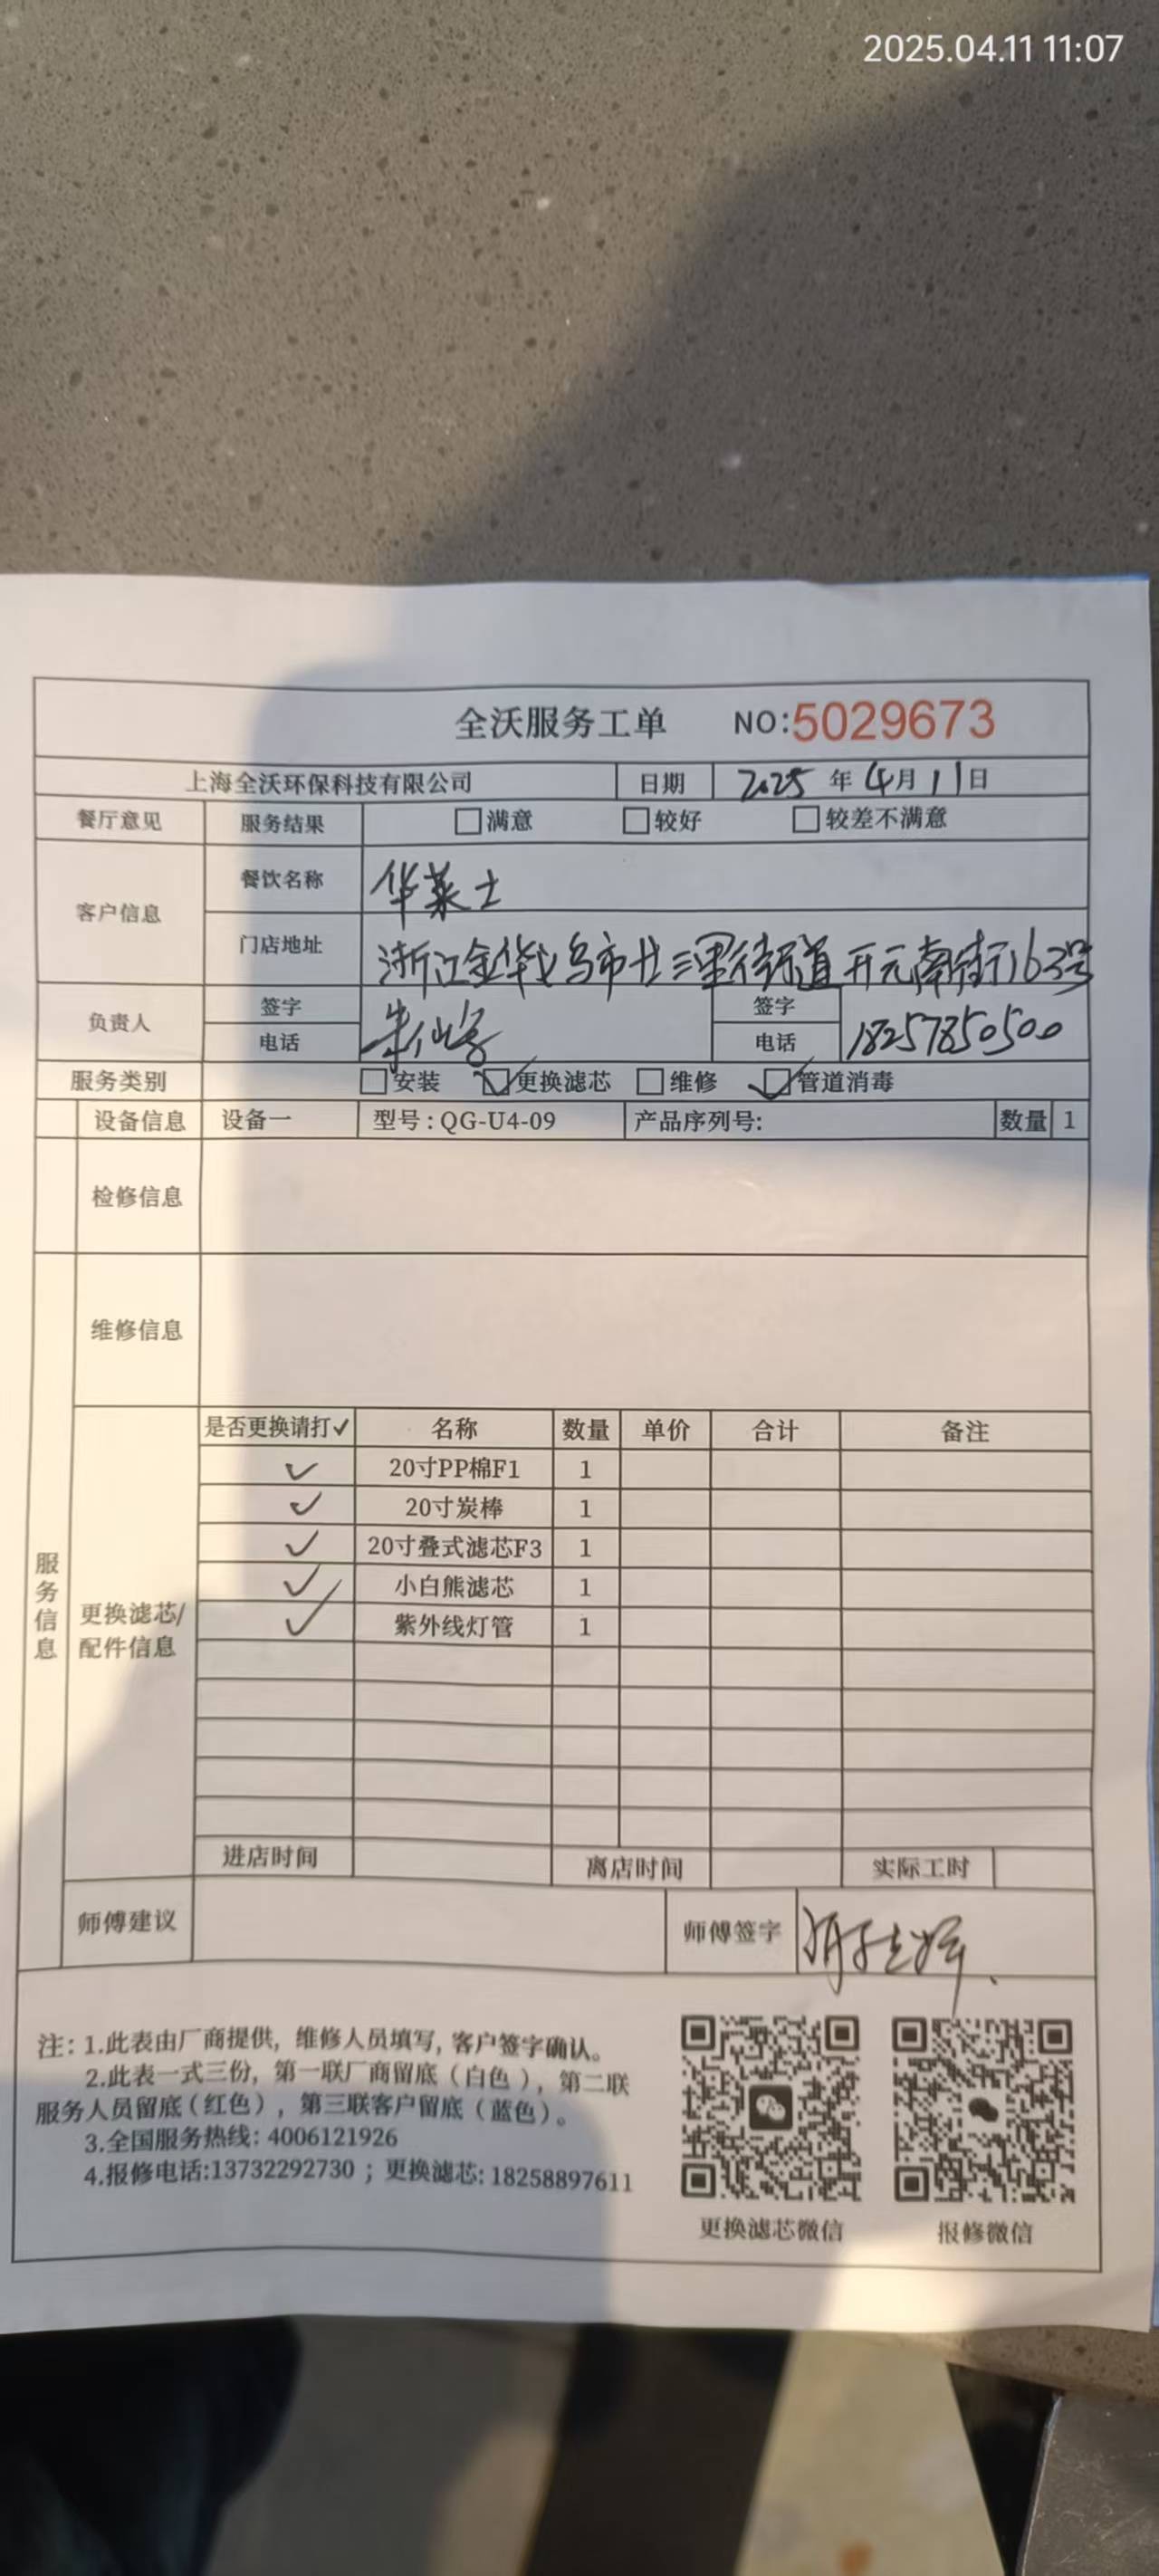 2025.04.11 11:07
全沃服务工单 NO:5029673
上海全沃环保科技有限公司 日期 2025 年 4月 11日
餐厅意见 服务结果 满意 较好 较差不满意
客户信息 餐饮名称 华莱士
门店地址 浙江金华义乌市廿三里街道开元南街163号
负责人 签字 签字
电话 电话 18257850500
服务类别 安装 更换滤芯 维修 管道消毒
设备信息 设备一 型号:QG-U4-09 产品序列号: 数量 1
检修信息
维修信息
服务信息
更换滤芯/配件信息
是否更换请打✓ 名称 数量 单价 合计 备注
✓ 20寸PP棉F1 1
✓ 20寸炭棒 1
✓ 20寸叠式滤芯F3 1
✓ 小白熊滤芯 1
✓ 紫外线灯管 1
进店时间 离店时间 实际工时
师傅建议 师傅签字
注: 1.此表由厂商提供, 维修人员填写, 客户签字确认。
2.此表一式三份, 第一联厂商留底（白色）, 第二联
服务人员留底（红色）, 第三联客户留底（蓝色）。
3.全国服务热线: 4006121926
4.报修电话:13732292730 ; 更换滤芯: 18258897611
更换滤芯微信 报修微信